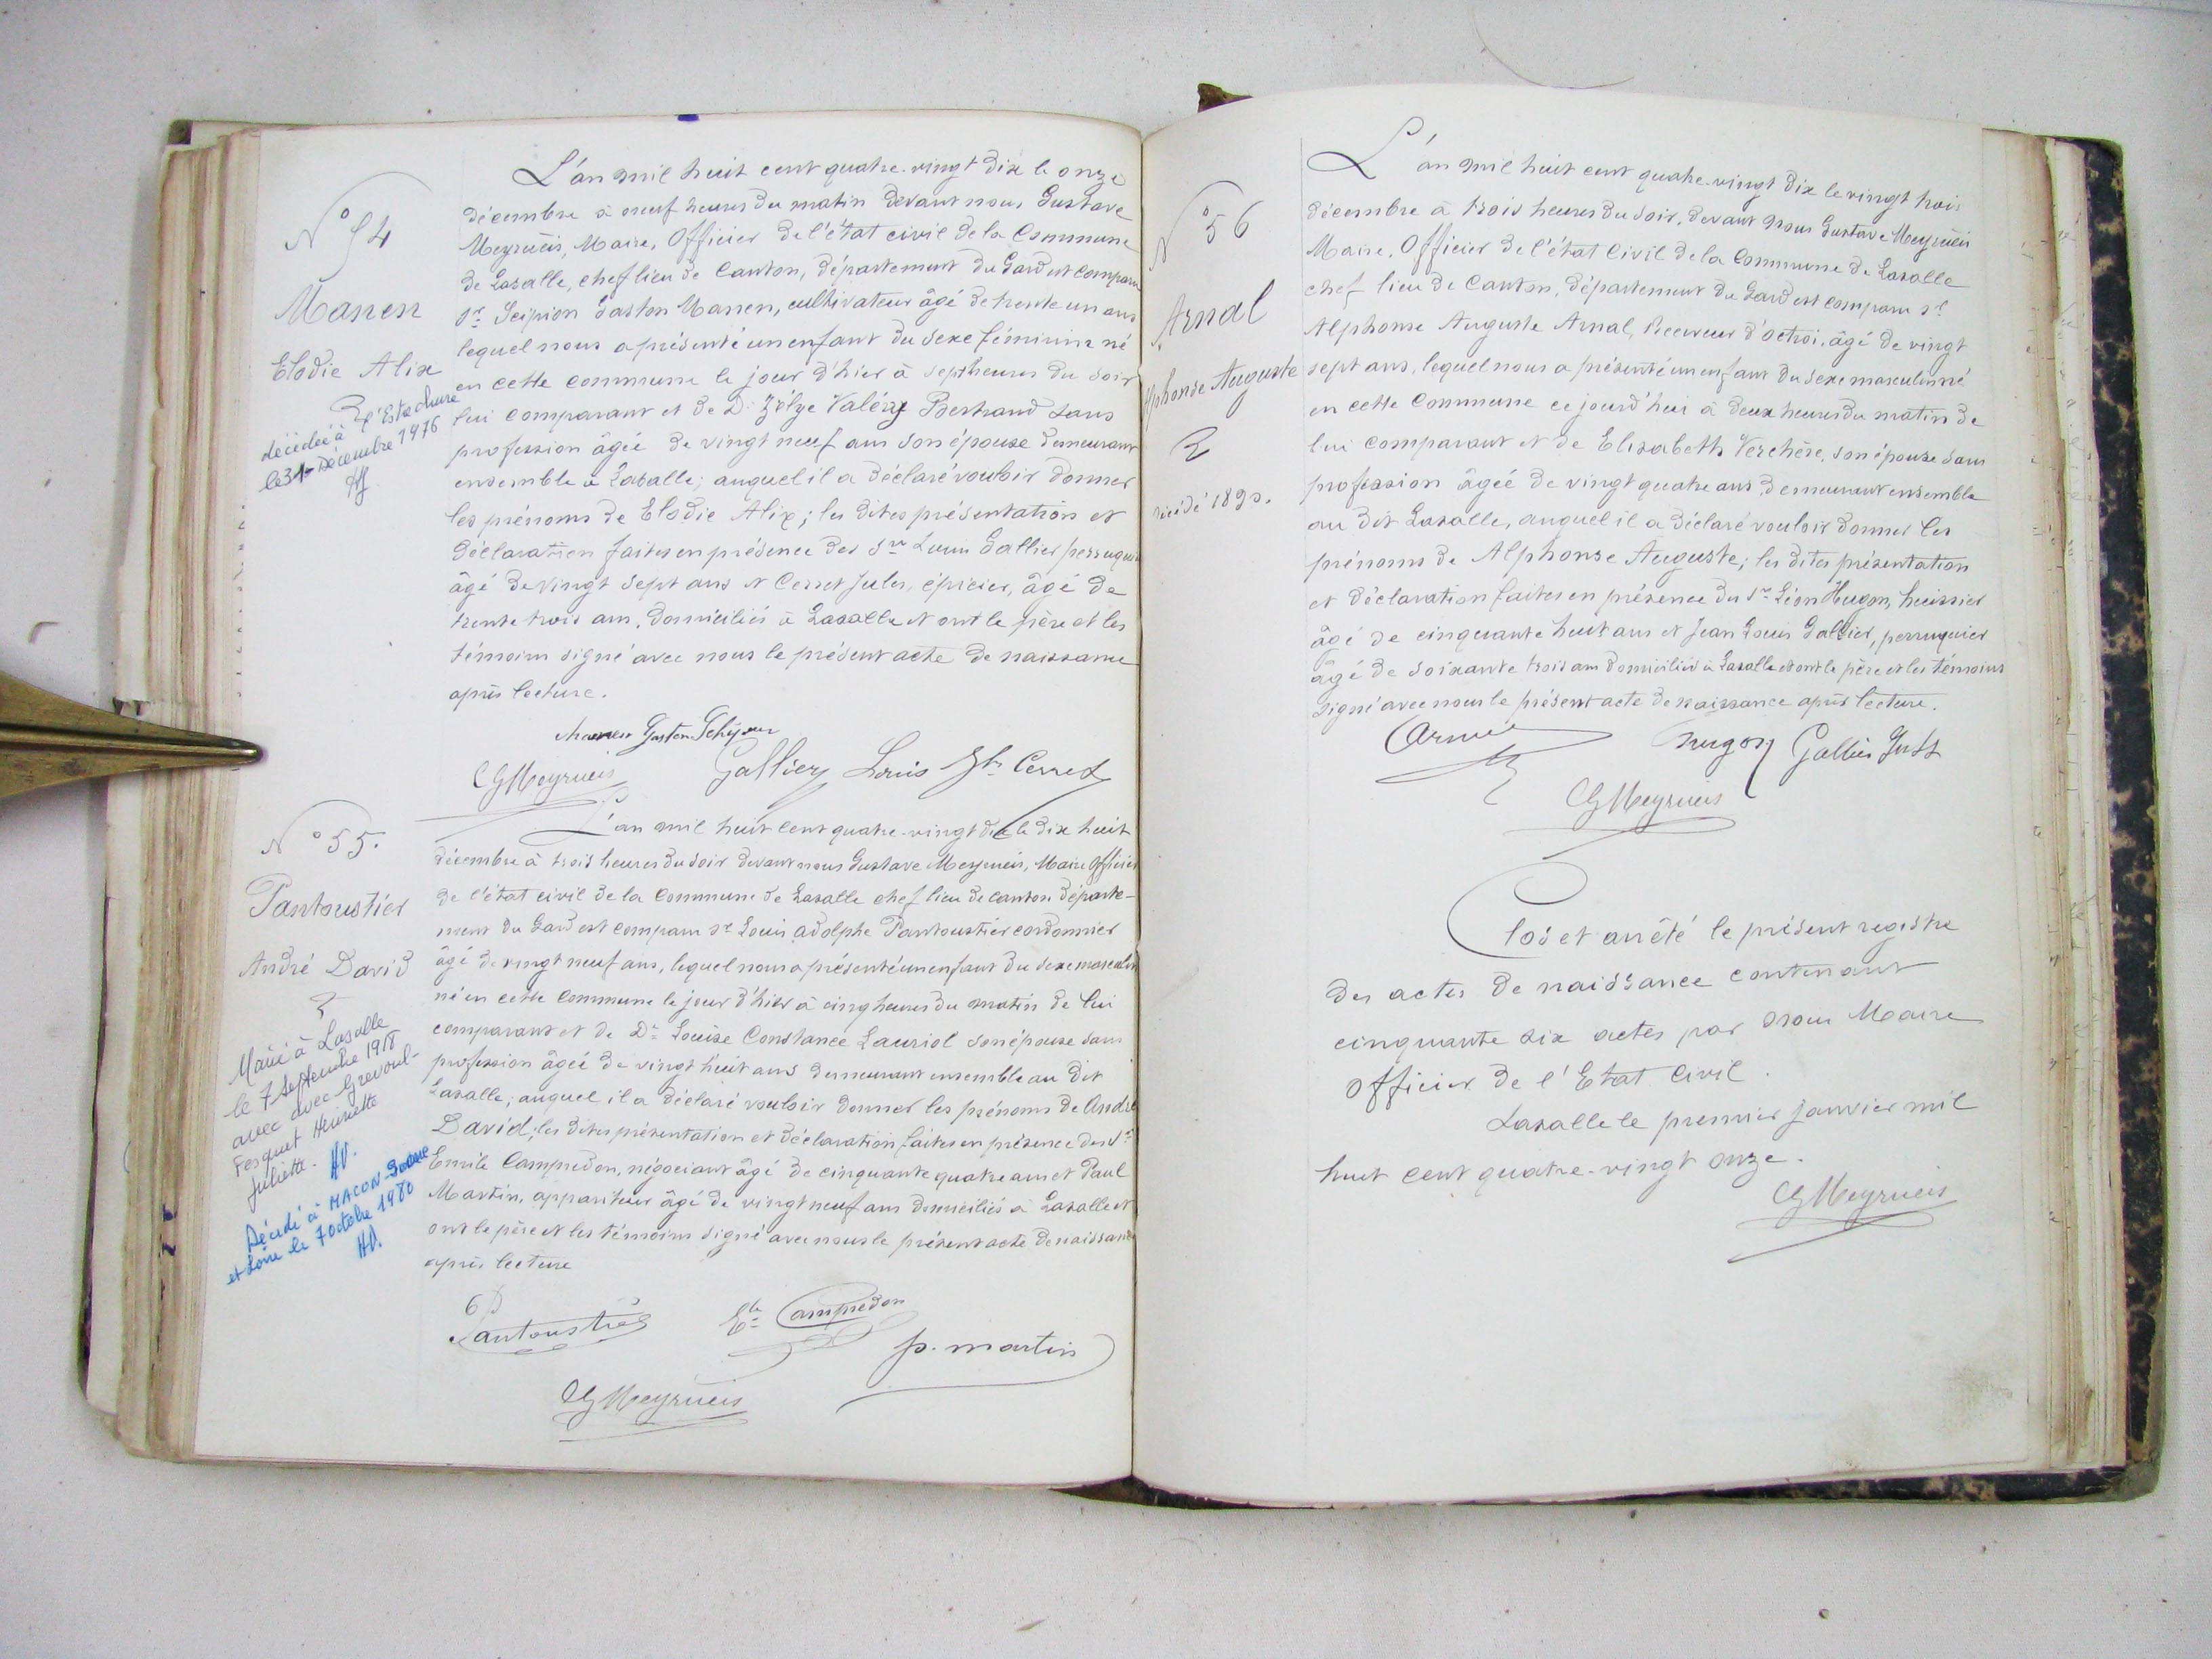 N° 54
Manen
Elodie Alix
décédée à l'Estechure
le 31 Décembre 1976
L'an mil huit cent quatre-vingt dix le onze
décembre à neuf heures du matin devant nous Gustave
Meyrueis, Maire, Officier de l'état civil de la Commune
de Lasalle, chef lieu de Canton, département du Gard est comparu
Sr Scipion Gaston Manen, cultivateur âgé de trente un ans
lequel nous a présenté un enfant du sexe féminin né
en cette commune le jour d'hier à sept heures du soir
lui comparant et de De Zélye Valéry Bertrand sans
profession âgée de vingt neuf ans son épouse demeurant
ensemble à Lasalle; auquel il a déclaré vouloir donner
les prénoms de Elodie Alix; les dites présentation et
déclaration faites en présence des Srs Louis Gallier perruquier
âgé de vingt sept ans et Cerret Jules, épicier, âgé de
trente trois ans, domiciliés à Lasalle et ont le père et les
témoins signé avec nous le présent acte de naissance
après lecture.
Manen Gaston
CG Meyrueis Gallier Louis Jls Cerret
N° 55.
Pantoustier
André David
Marié à Lasalle
le 7 Septembre 1918
avec avec Grevoul-
Fesquet Henriette
Juliette. HV.
Décédé à MACON-Saône
et Loire le 7 octobre 1980
HV.
L'an mil huit cent quatre-vingt dix le dix huit
décembre à trois heures du soir devant nous Gustave Meyrueis, Maire Officier
de l'état civil de la Commune de Lasalle chef lieu de canton départe-
ment du Gard est comparu Sr Louis adolphe Pantoustier cordonnier
âgé de vingt neuf ans, lequel nous a présenté un enfant du sexe masculin
né en cette commune le jour d'hier à cinq heures du matin de lui
comparant et de De Louise Constance Lauriol son épouse sans
profession âgée de vingt huit ans demeurant ensemble au dit
Lasalle; auquel il a déclaré vouloir donner les prénoms de André
David; les dites présentation et déclaration faites en présence des Srs
Emile Campredon, négociant âgé de cinquante quatre ans et Paul
Martin, appariteur âgé de vingt neuf ans domiciliés à Lasalle et
ont le père et les témoins signé avec nous le présent acte de naissance
après lecture
Pantoustier Ele Campredon
p. martin
CG Meyrueis
N° 56
Arnal
Alphonse Auguste
décédé 1890.
L'an mil huit cent quatre-vingt dix le vingt trois
décembre à trois heures du soir, devant nous Gustave Meyrueis
Maire, Officier de l'état Civil de la Commune de Lasalle
chef lieu de Canton, département du Gard est comparu sr
Alphonse Auguste Arnal, Receveur d'octroi, âgé de vingt
sept ans, lequel nous a présenté un enfant du sexe masculin né
en cette Commune ce jourd'hui à deux heures du matin de
lui comparant et de Elisabeth Verchère, son épouse sans
profession âgée de vingt quatre ans demeurant ensemble
au dit Lasalle, auquel il a déclaré vouloir donner les
prénoms de Alphonse Auguste; les dites présentation
et déclaration faites en présence du Sr Léon Hugon, huissier
âgé de cinquante huit ans et Jean Louis Gallier, perruquier
âgé de soixante trois ans domiciliés à Lasalle et ont le père et les témoins
signé avec nous le présent acte de naissance après lecture.
Arnal hugon Gallier
CG Meyrueis
Clos et arrêté le présent registre
des actes de naissance contenant
cinquante six actes par nous Maire
officier de l'Etat Civil.
Lasalle le premier janvier mil
huit cent quatre-vingt onze.
CG Meyrueis